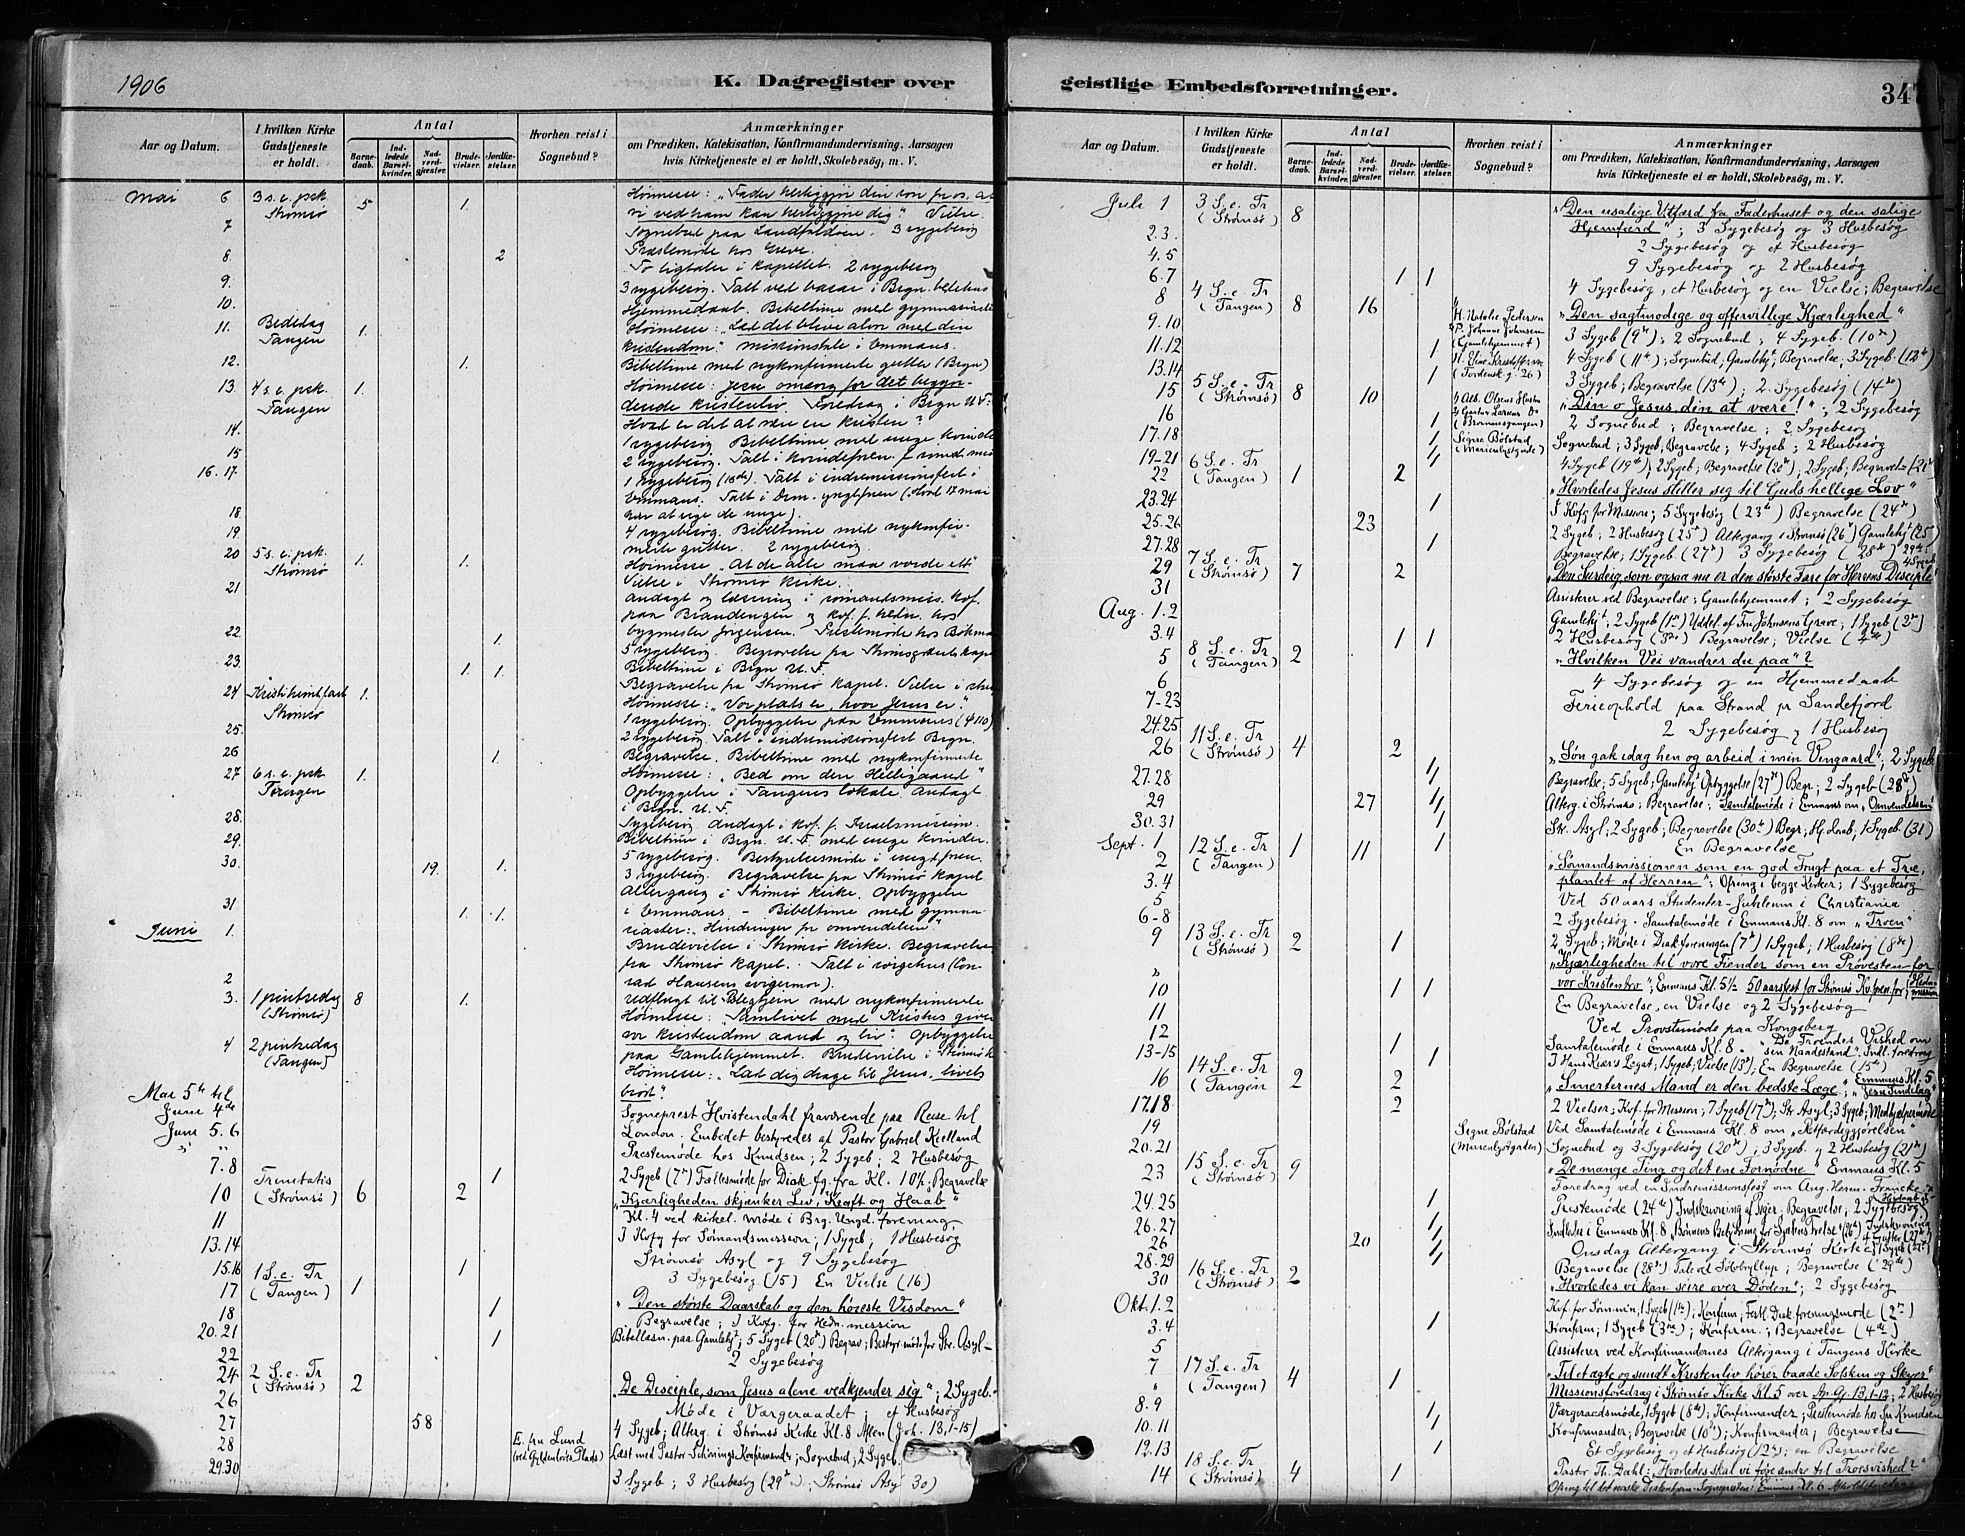 1906
K. Dagregister over
Aar og Datum.
I hvilken Kirke Gudstjeneste er holdt.
Antal
Barnedaab.
Indledede Barselkvinder.
Nadverdgjæster.
Brudevielser.
Jordfæstelser.
Hvorhen reist i Sognebud?
Anmærkninger
om Prædiken, Katekisation, Konfirmandundervisning, Aarsagen
hvis Kirketjeneste ei er holdt, Skolebesøg, m. V.
Mai 6 3 s. e. psk. Strømsø 5 1.
7
8 2
9.
10.
11. Bededag Tangen 1.
12. 1.
13. 4 s. e. psk. Tangen 1.
14.
15
16. 17.
18.
19.
20 5 s. e. psk. Strømsø 1. 1.
21
22. 1.
23. 1 1.
24 Kristi himmelfart Strømsø 1.
25.
26 1.
27 6 s. e. psk Tangen 1.
28.
29.
30. 19. 1.
31 1. 1.
Juni 1.
2
3. 1 pinsedag (Strømsø) 8 1.
4 2 pinsedag (Tangen)
Høimesse: "Fader herliggjør din søn
vi ved ham kan herliggjøre dig" Vielse.
Sognebud paa Landfaldøen. 3 sygebesøg
Præstemøde hos Greve.
To ligtaler i kapellet. 2 sygebesøg
3 sygebesøg. Talt ved basar i Brgn.
Hjemmedaab. Bibeltime med
Høimesse: "Lad det blive alvor med din
kristendom." missionstale i Emmaus.
Bibeltime med nykonfirmerte gutter (Brgn)
Høimesse: Jesu omsorg for det begyn-
dende kristenliv. Foredrag i Brgn U.F.
Hvad er det at være en kristen?
1 sygebesøg Bibeltime med unge kvinder
2 sygebesøg. Talt i kvindefren.
1 sygebesøg (16de). Talt i indremissionsfest i
Emmaus. Talt i (Hvad 17 mai
har at sige de unge).
4 sygebesøg. Bibeltime med nykonfir-
merte gutter. 2 sygebesøg.
Høimesse "At de alle maa vorde ett"
Vielse i Strømsø kirke.
Andagt og læsning i
paa Brandengen og kof. f. hedn. hos
bygmester Jørgensen. Prestemøde hos
5 sygebesøg. Begravelse paa
Bibeltime i Brgn U.F.
Begravelse fra Strømsø kapel. Vielse i
Høimesse: "Vor plads er, hvor Jesus er."
1 sygebesøg. Opbyggelse paa Emmaus
2 sygebesøg. Talt i indremissionsfest Brgn.
Begravelse. Bibeltime med nykonfirmerte
Høimesse: "Bed om den Helligaand"
Opbyggelse i Tangens lokale. Andagt
i Brgn. U.F.
Sygebesøg Andagt i kof. f. Israelsmission.
Bibeltime i Brgn. U.F. med unge kvinder.
5 sygebesøg. Bestyrelsesmøde i
3 sygebesøg. Begravelse fra Strømsø kapel
Altergang i Strømsø kirke. Opbyggelse
i Emmaus. - Bibeltime med gymna-
siaster: "Hindringer for omvendelsen".
Brudevielse i Strømsø kirke. Begravelse
fra Strømsø kapel. Talt i sørgehus (Con-
rad Hansens svigermor).
Udflugt til med nykonfirmerte
Høimesse: "Samlivet med Kristus giver
vor kristendom aand og liv". Opbyggelse
paa Gamlehjemmet. Brudevielse i Strømsø k
Høimesse: "Lad dig drage til Jesus, livets
brød".
Mai 5te til
Juni 4de Sogneprest Hvistendahl fraværende paa Reise til
London. Embedet bestyredes af Pastor Gabriel Kielland
Juni 5. 6 Prestemøde hos Knudsen; 2 Sygeb; 2 Husbesøg
7. 8 1 2 Sygeb (7de) Fællesmøde for Diak.fg. fra Kl. 10½, Begravelse
10 Trinitatis (Strømsø) 6 2 "Kjærligheden skjænker Liv, Kraft og Haab"
11 Kl. 4 ved kirkel. møde i Brg. Ungd. forening
13. 14 I Kofg for Sømandsmission; 1 Sygeb; 1 Husbesøg
Strømsø Asyl og 9 Sygebesøg
15. 16 1 3 Sygebesøg (15) En Vielse (16)
17 1 S. e. Tr (Tangen) 1 "Den største Daarskab og den høieste Visdom"
18 1 Begravelse; I Kofg. for Hedn. mission
20. 21 1 Bibellæsn. paa Gamlehj; 5 Sygeb (20de) Begrav; Bestyr. møde for Str. Asyl
22 2 Sygebesøg
24 2 S. e. Tr (Strømsø) 2 "De Disciple, som Jesus alene vedkjender sig"; 2 Sygeb.
26 Møde i Værgeraadet; et Husbesøg
27 58 4 Sygeb; Alterg. i Strømsø Kirke Kl. 8 Aften (Joh. 13,1-15)
28 E. fru Lund (ved Gyldenløves Plads) Læst med Pastor Konfirmander; Sognebud; 2 Sygeb.
29. 30 3 Sygeb; 3 Husbesøg (29de); Strømsø Asyl (30)
geistlige Embedsforretninger.
347
Aar og Datum.
I hvilken Kirke Gudstjeneste er holdt.
Antal
Barnedaab.
Indledede Barselkvinder.
Nadverdgjæster.
Brudevielser.
Jordfæstelser.
Hvorhen reist i Sognebud?
Anmærkninger
om Prædiken, Katekisation, Konfirmandundervisning, Aarsagen
hvis Kirketjeneste ei er holdt, Skolebesøg, m. V.
Juli 1 3 S. e. Tr (Strømsø) 8 "Den usalige Utfærd fra Faderhuset og den salige
Hjemfærd"; 3 Sygebesøg og 3 Husbesøg
2. 3. 2 Sygebesøg og et Husbesøg
4. 5 9 Sygebesøg og 2 Husbesøg
6. 7 1 1 4 Sygebesøg, et Husbesøg og en Vielse; Begravelse
8 4 S. e. Tr (Tangen) 8 16 "Den sagtmodige og offervillige Kjærlighed"
9. 10 H. Natalie Pedersen P. Johanne Johnsen (Gamlehjemmet) 3 Sygeb (9de); 2 Sognebud; 4 Sygeb. (10de)
11. 12 1 4 Sygeb (11te); Sognebud; Gamlehj; Begravelse; 3 Sygeb. (12te)
13. 14 1 (Tordensk. g. 26) 3 Sygeb; Begravelse (13de); 2 Sygebesøg (14de)
15 5 S. e. Tr (Strømsø) 8 10 "Din o Jesus, din at være!"; 2 Sygebesøg
16 1 2 Sognebud; Begravelse; 2 Sygebesøg
17. 18 Signe Bølstad (Marienlystgade) Sognebud; 3 Sygeb; Begravelse; 4 Sygeb; 2 Husbesøg
19-21 4 Sygeb (19de); 2 Sygeb; Begravelse (20de); 2 Sygeb; Begravelse (21de)
22 6 S. e. Tr (Tangen) 1 2 "Hvorledes Jesus stiller sig til Guds hellige Lov"
23. 24 1 I Kofg for Mission; 5 Sygebesøg (23de) Begravelse (24de)
25. 26 23 2 Sygeb; 2 Husbesøg (25de) Altergang i Strømsø (26de) Gamlehj (25)
27. 28 1 Begravelse; 1 Sygeb. (27de) 3 Sygebesøg (28de) 29de 4 Sygeb
29 7 S. e. Tr (Strømsø) 7 2 "Den Surdeig, som ogsaa nu er den største Fare for Herrens Disciple"
31 Assisterer ved Begravelse; Gamlehjemmet; 2 Sygebesøg
Aug. 1. 2 Gamlehj; 2 Sygeb (1ste) Uddel. af Fru Johnsens Greve; 1 Sygeb (2den)
3. 4 1 1 2 Husbesøg (3die) Begravelse; Vielse (4de)
5 8 S. e. Tr (Tangen) 2 "Hvilken Vei vandrer du paa"?
6 4 Sygebesøg og en Hjemmedaab
7-23 Ferieophold paa Strand pr Sandefjord
24. 25 2 Sygebesøg og 1 Husbesøg
26 11 S. e. Tr (Strømsø) 4 2 "Søn gak idag hen og arbeid i min Vingaard"; 2 Sygeb
27. 28 Begravelse; 5 Sygeb; Gamlehj Opbyggelse (27de) Begr; 2 Sygeb (28de)
29 27 Alterg. i Strømsø; Begravelse; Samtalemøde i Emmaus om "Omvendelsen"
30. 31 Str. Asyl; 2 Sygeb; Begravelse (30te) Begr; Hj. daab, 1 Sygeb. (31)
Sept. 1 1 En Begravelse
2 12 S. e. Tr (Tangen) 1 11 "Sømandsmissionen som en god Frugt paa et Træ,
plantet af Herren"; Ofring i begge Kirker; 1 Sygebesøg
3. 4
5 Ved 50 aars Studenter-Jubileum i Christiania
6-8 2 Sygebesøg. Samtalemøde i Emmaus Kl. 8 om "Troen"
2 Sygeb; Møde i Diakforeningen (7de) 1 Sygeb; 1 Husbesøg (8de)
9 13 S. e. Tr (Strømsø) 2 1 "Kjærligheden til vore Fiender som en Prøvesten for
vor Kristentro"; Emmaus Kl. 5½ 50 aarsfest for Strømsø Kv.fren. for Hednmission
10 1 1 En Begravelse, en Vielse og 2 Sygebesøg
11 Ved Provstemøde paa Kongsberg
12 Samtalemøde i Emmaus Kl. 8 "De Troendes Vished om sin Naadestand". Indl. foredrag
13-15 1 1 I Hans Kiærs Legat; 1 Sygeb; Vielse (15de); En Begravelse (15de)
16 14 S. e. Tr (Tangen 2 2 "Smerternes Mand er den bedste Læge" Emmaus Kl. 5
17. 18 2 2 Vielser; Kof. for Mission; 7 Sygeb (17de); Str. Asyl; 3 Sygeb; Medhjælpermøde
19 Ved Samtalemøde i Emmaus Kl. 8 om "Retfærdiggjørelsen"
20. 21 Signe Bølstad (Marienlystgaten) Sognebud og 3 Sygebesøg (20de); 3 Sygeb. og 2 Husbesøg (21de)
23 15 S. e. Tr (Strømsø) 9 "De mange Ting og det ene Fornødne" Emmaus Kl. 5
Foredrag ved en Indremissionsfest om Aug. Herm. Francke
24. 25 Prestemøde (24de) Indskrivning af Piger, Begravelse, 2 Sygebesøg
26. 27 Indledet i Emmaus Kl. 8
26 20 Onsdag Altergang i Strømsø Kirke
28. 29 Begravelse (28de) Tale ved Sølvbryllup; Begravelse (29de)
30 16 S. e. Tr (Strømsø) 2 "Hvorledes vi kan seire over Døden"; 2 Sygebesøg
Okt. 1. 2 Kof. for Søm.min; 1 Sygeb (1ste); Konfirm; Festl. Diak. foreningsmøde (2den)
3. 4 1 Konfirm; 1 Sygeb (3die); Konfirm; Begravelse (4de)
5 Assisterer ved Konfirmandernes Altergang i Tangens Kirke
7 17 S. e. Tr (Tangen) 4 1 "Til et ægte og sundt Kristenliv hører baade Solskin og Skyer"
" Missionsforedrag i Strømsø Kirke Kl. 5 over Ap. Gj. 13, 1-13; 2 Husbesøg
8. 9 Værgeraadsmøde, 1 Sygeb (8de); Konfirmander; Prestemøde hos Spr Knudsen
10. 11 Konfirmander; Begravelse (10de); Konfirmander; Begravelse
12. 13 1 Et Sygebesøg og et Husbesøg (12te); en Begravelse
14 18 S. e. Tr (Strømsø) 4 1 Pastor Th. Dahl: "Hvorledes skal vi føre andre til Troesvished?"